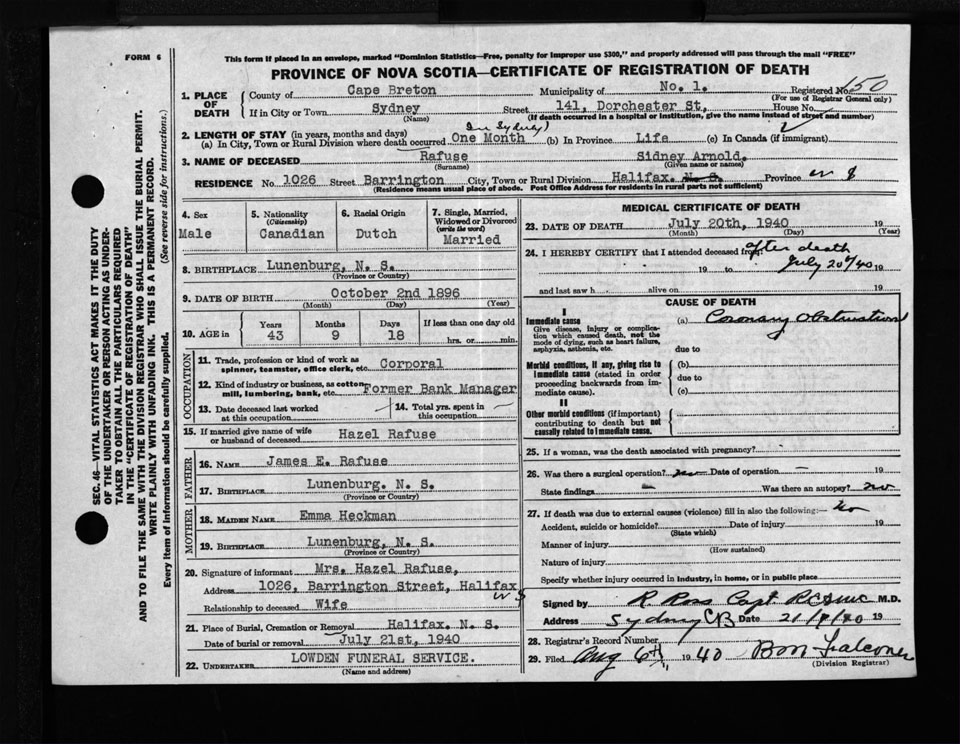 FORM 6
This form if placed in an envelope, marked "Dominion Statistics—Free, penalty for improper use $300," and properly addressed will pass through the mail "FREE"
PROVINCE OF NOVA SCOTIA—CERTIFICATE OF REGISTRATION OF DEATH
1. PLACE OF DEATH
County of Cape Breton Municipality of No. 1. Registered No. 150
(For use of Registrar General only)
If in City or Town Sydney Street 141, Dorchester St, House No.
(Name) (If death occurred in a hospital or institution, give the name instead of street and number)
2. LENGTH OF STAY (in years, months and days) (In Sydney)
(a) In City, Town or Rural Division where death occurred One Month (b) In Province Life (c) In Canada (if immigrant)
3. NAME OF DECEASED Rafuse Sidney Arnold.
(Surname) (Given name or names)
RESIDENCE No. 1026 Street Barrington City, Town or Rural Division Halifax. N. S. Province N S
(Residence means usual place of abode. Post Office Address for residents in rural parts not sufficient)
4. Sex Male
5. Nationality (Citizenship) Canadian
6. Racial Origin Dutch
7. Single, Married, Widowed or Divorced (write the word) Married
8. BIRTHPLACE Lunenburg, N. S.
(Province or Country)
9. DATE OF BIRTH October 2nd 1896
(Month) (Day) (Year)
10. AGE in Years 43 Months 9 Days 18 If less than one day old hrs. or min.
OCCUPATION
11. Trade, profession or kind of work as spinner, teamster, office clerk, etc. Corporal
12. Kind of industry or business, as cotton mill, lumbering, bank, etc. Former Bank Manager
13. Date deceased last worked at this occupation
14. Total yrs. spent in this occupation
15. If married give name of wife or husband of deceased Hazel Rafuse
FATHER
16. NAME James E. Rafuse
17. BIRTHPLACE Lunenburg. N. S.
(Province or Country)
MOTHER
18. MAIDEN NAME Emma Heckman
19. BIRTHPLACE Lunenburg, N. S.
(Province or Country)
20. Signature of informant Mrs. Hazel Rafuse,
Address 1026, Barrington Street, Halifax
N S
Relationship to deceased Wife
21. Place of Burial, Cremation or Removal Halifax. N. S.
Date of burial or removal July 21st, 1940
22. UNDERTAKER LOWDEN FUNERAL SERVICE.
(Name and address)
MEDICAL CERTIFICATE OF DEATH
23. DATE OF DEATH July 20th, 1940 19
(Month) (Day) (Year)
24. I HEREBY CERTIFY that I attended deceased from after death
19 to July 20/40 19
and last saw h alive on 19
CAUSE OF DEATH
I
Immediate cause
Give disease, injury or complication which caused death, not the mode of dying, such as heart failure, asphyxia, asthenia, etc.
(a) Coronary Obstruction
due to
Morbid conditions, if any, giving rise to immediate cause (stated in order proceeding backwards from immediate cause).
(b)
due to
(c)
II
Other morbid conditions (if important) contributing to death but not causally related to immediate cause.
25. If a woman, was the death associated with pregnancy?
26. Was there a surgical operation? no Date of operation — 19
State findings — Was there an autopsy? no
27. If death was due to external causes (violence) fill in also the following:— no
Accident, suicide or homicide? Date of injury 19
(State which)
Manner of injury
(How sustained)
Nature of injury
Specify whether injury occurred in industry, in home, or in public place
Signed by R. Ross Capt. RCAMC M.D.
Address Sydney CB Date 21/7/40 19
28. Registrar's Record Number
29. Filed Aug 6th 1940 Falconer
(Division Registrar)
SEC. 46—VITAL STATISTICS ACT MAKES IT THE DUTY
OF THE UNDERTAKER OR PERSON ACTING AS UNDER-
TAKER TO OBTAIN ALL THE PARTICULARS REQUIRED
IN THE "CERTIFICATE OF REGISTRATION OF DEATH"
AND TO FILE THE SAME WITH THE DIVISION REGISTRAR WHO SHALL ISSUE THE BURIAL PERMIT.
WRITE PLAINLY WITH UNFADING INK. THIS IS A PERMANENT RECORD.
Every item of information should be carefully supplied. (See reverse side for instructions.)